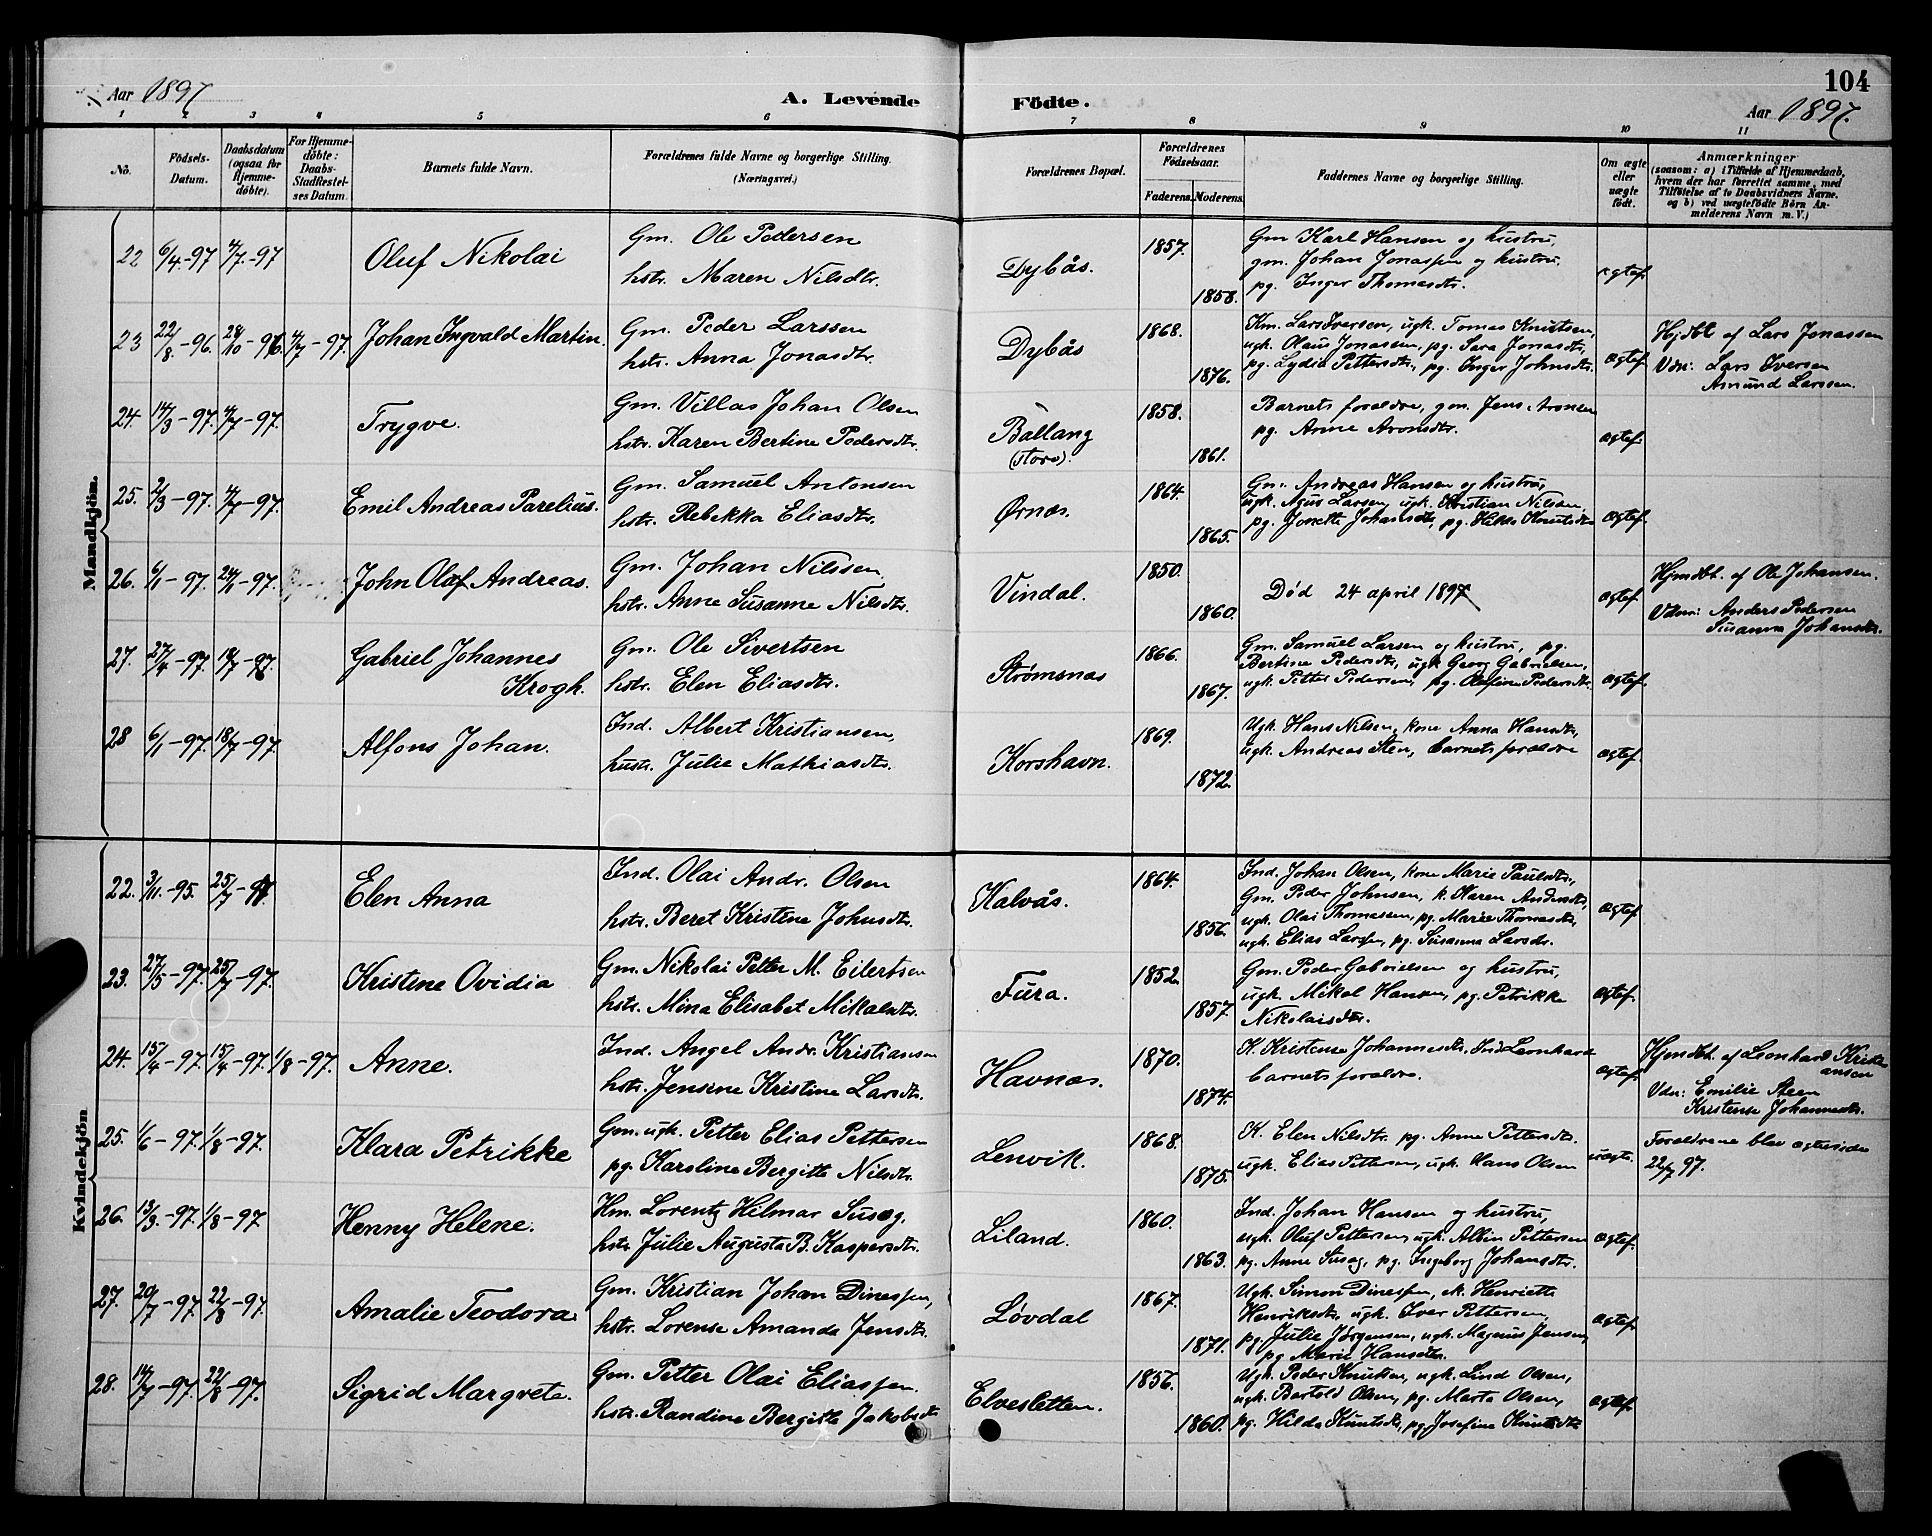 Aar 1897
A. Levende Födte.
Aar 1897.
104
1 2 3 4 5 6 7 8 9 10 11
No.
Födsels-Datum.
Daabsdatum (ogsaa for Hjemme-döbte).
For Hjemme-döbte: Daabs-Stadfæstel-ses Datum.
Barnets fulde Navn.
Forældrenes fulde Navne og borgerlige Stilling. (Næringsvei.)
Forældrenes Bopæl.
Forældrenes Födselsaar.
Faderens. Moderens.
Faddernes Navne og borgerlige Stilling.
Om ægte eller uægte födt.
Anmærkninger
(saasom: a) i Tilfælde af Hjemmedaab,
hvem der har forrettet samme, med
Tilföielse af to Daabsvidners Navne.
og b) ved uægtefödte Börn An-
melderens Navn m. V.)
Mandkjön.
22 6/4-97 4/7-97 Oluf Nikolai
Gm. Ole Pedersen
hstr. Maren Nilsdtr.
Dybås. 1857. 1858.
Gm Karl Hansen og hustru,
gm. Johan Jonassen og hustru.
pg. Inger Thomasdtr.
ægtef.
23 22/8-96. 28/10-96. 4/7-97. Johan Ingvald Martin.
Gm. Peder Larssen
hstr. Anna Jonasdtr.
Dybås 1868. 1876.
Km. Lars Iversen, ugk. Tomas Knutsen,
ugk. Olaus Jonassen, pg. Sara Jonasdtr,
pg. Lydia Pettersdtr, pg. Inger Johnsdtr.
ægtef.
Hjdbt af Lars Jonassen
Vdn: Lars Iversen
Amund Larssen.
24. 14/3-97. 4/7-97. Trygve.
Gm. Villas Johan Olsen
hstr. Karen Bertine Pedersdtr.
Ballang (store). 1858. 1861.
Barnets forældre, gm. Jens Aronsen
pg. Anne Aronsdtr.
ægtef.
25. 2/3-97. 4/7-97. Emil Andreas Parelius.
Gm. Samuel Antonsen
hstr. Rebekka Eliasdtr.
Ørnes. 1864. 1865.
Gm. Andreas Hansen og hustru,
ugk. Larsen, ugk. Kristian Nilsen,
pg. Jonette Johansdtr, pg. Knutsdtr
ægtef.
26. 6/1-97. 24/1-97. John Olaf Andreas.
Gm. Johan Nilssen
hstr. Anne Susanne Nilsdtr.
Vindal. 1850. 1860.
Død 24 april 1897
ægtef.
Hjmdbt. af Ole Johansen.
Vdnr: Anders Pedersen
Susanna Johansdtr.
27. 27/4-97. 18/7-97. Gabriel Johannes
Krogh.
Gm. Ole Sivertsen
hstr. Elen Eliasdtr.
Strømsnas 1866. 1867.
Gm. Samuel Larsen og hustru, pg.
Bertine Pedersdtr, ugk Georg Gabrielsen,
ugk. Petter Pedersen, pg. Olufine Pedersdtr.
ægtef.
28 6/1-97. 18/7-97. Alfons Johan.
Ind. Albert Kristiansen,
hustr. Julie Mathiasdtr.
Korshavn. 1869. 1872.
Ugk. Hans Nilsen, kone Anna Hansdtr,
ugk. Andreas Sten, barnets forældre
ægtef.
Kvindekjön
22. 3/11-95. 25/7-97. Elen Anna
Ind. Olai Andr. Olsen
hstr. Beret Kristine Johnsdtr.
Kalvås. 1864. 1856.
Ind. Johan Olsen, kone Marie Paulsdtr,
Gm. Peder Johnsen, k. Karen Andersdtr,
ugk. Olai Thomassen, pg. Marie Thomasdtr,
ugk. Elias Larssen, pg. Susanna Larsdtr.
ægtef
23. 27/5-97. 25/7-97. Kristine Ovidia
Gm. Nikolai Petter M. Eilertsen
hstr. Mina Elisabet Mikalsdtr.
Fura. 1852. 1857.
Gm. Peder Gabrielsen og hustru,
ugk. Mikal Hansen, pg. Petrikke
Nikolaisdtr.
ægtef.
24. 15/4-97. 15/4-97. 1/8-97. Anne.
Ind. Angel Andr. Kristiansen
hstr. Jensine Kristine Larsdtr.
Havnas. 1870. 1874.
K. Kristense Johannesdtr, Ind Leonhard
barnets forældre.
ægtef.
Hjmdbt. af Leonhard Kristi
ansen
Vdn: Emilie Steen
Kristense Johannesdtr.
25. 1/6-97. 1/8-97. Klara Petrikke
Gm. ugk. Petter Elias Pettersen
pg. Karoline Bergitte Nilsdtr.
Lenvik. 1868. 1870.
K. Elen Nilsdtr, pg. Anne Pettersdtr.
ugk. Elias Pettersen, ugk. Hans Olsen
uægte.
Forældrene blev ægteviede
22/7 97.
26. 13/3-97. 1/8-97 Henny Helene.
Hm. Lorentz Hilmar Susag,
hstr. Julie Augusta B. Kaspersdtr.
Liland. 1860. 1863.
Ind. Johan Hansen og hustru,
ugk. Oluf Pettersen, ugk. Albin Pettersen
pg. Anne Susag, pg. Ingeborg Johansdtr.
ægtef.
27. 20/7-97. 22/8-97. Amalie Teodora
Gm. Kristian Johan Dinessen,
hstr. Lorense Amanda Jensdtr.
Løvdal 1867. 1871.
Ugk. Simon Dinessen, k. Henriette
Henriksdtr, ugk. Iver Pettersen,
pg. Julie Jørgensen, ugk. Magnus Jensen,
pg Marie Hansdtr.
ægtef.
28. 14/7-97. 22/8-97. Sigrid Margrete.
Gm. Petter Olai Eliassen.
hstr. Randine Bergitte Jakobsdtr
Elvesletten. 1856. 1860.
Ugk. Peder Knutsen, ugk. Lind Olsen,
ugk. Bartold Olsen, pg. Marta Olsen,
pg. Hilda Knutsdtr, pg. Josefine Knutsdtr
ægtef.